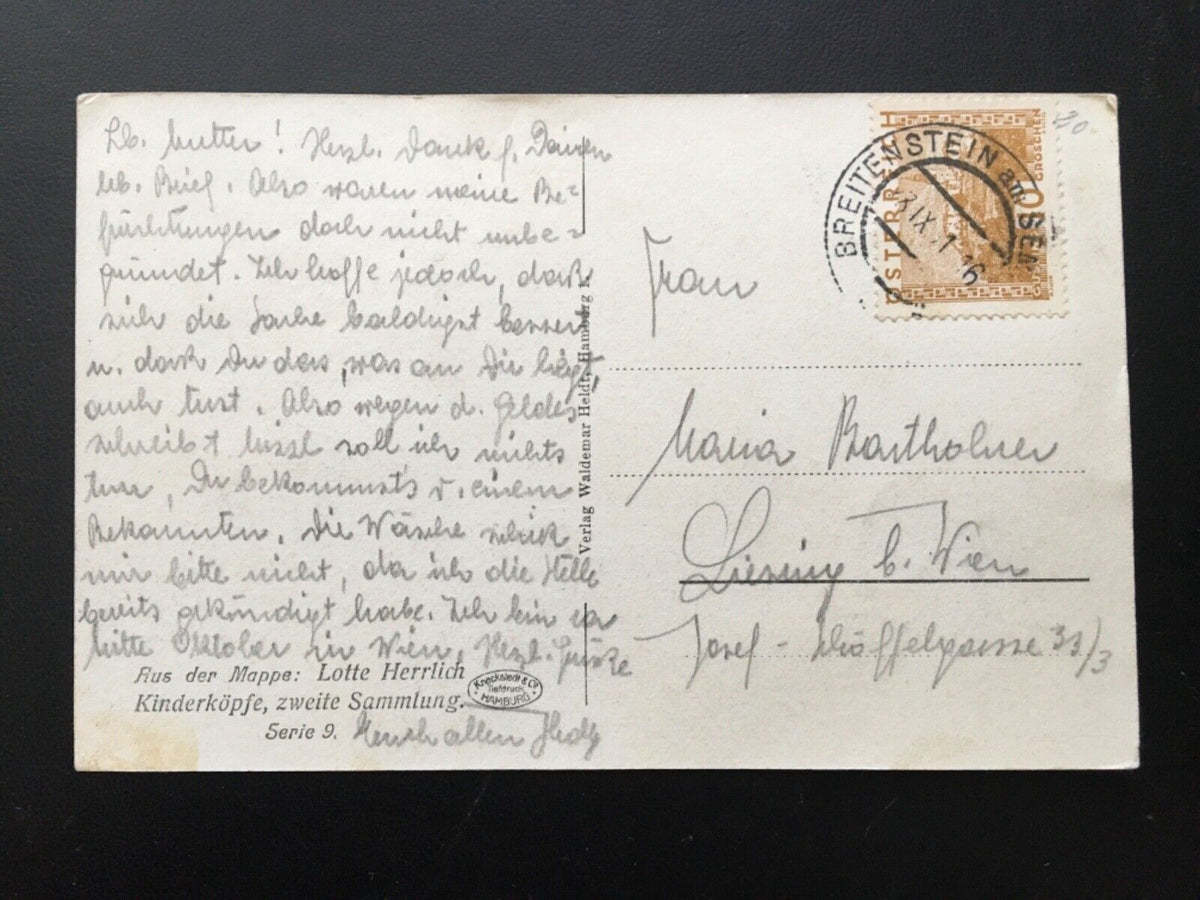 Lb. Mutter! Herzl. Dank f. Deinen
lieb. Brief. Also waren meine Be=
fürchtungen doch nicht unbe=
gründet. Ich hoffe jedoch, daß
sich die Sache baldigst bessert
u. daß Du das, was an Dir liegt,
auch tust. Also wegen d. Geldes
schreibst soll ich nichts
tun, Du bekommst's v. einem
Bekannten. Die Wäsche schick
mir bitte nicht, da ich die Stelle
bereits gekündigt habe. Ich bin ca
Mitte Oktober in Wien. Herzl. Grüße
Euch allen Hedy
Aus der Mappe: Lotte Herrlich
Kinderköpfe, zweite Sammlung.
Serie 9.
Kneckstedt & Co
Tiefdruck
HAMBURG
Verlag Waldemar Heldt, Hamburg
ÖSTERREICH
GROSCHEN
BREITENSTEIN am SEM
IX
20
Frau
Maria Bartholner
Liesing b. Wien
Josef-Schöffelgasse 31/3